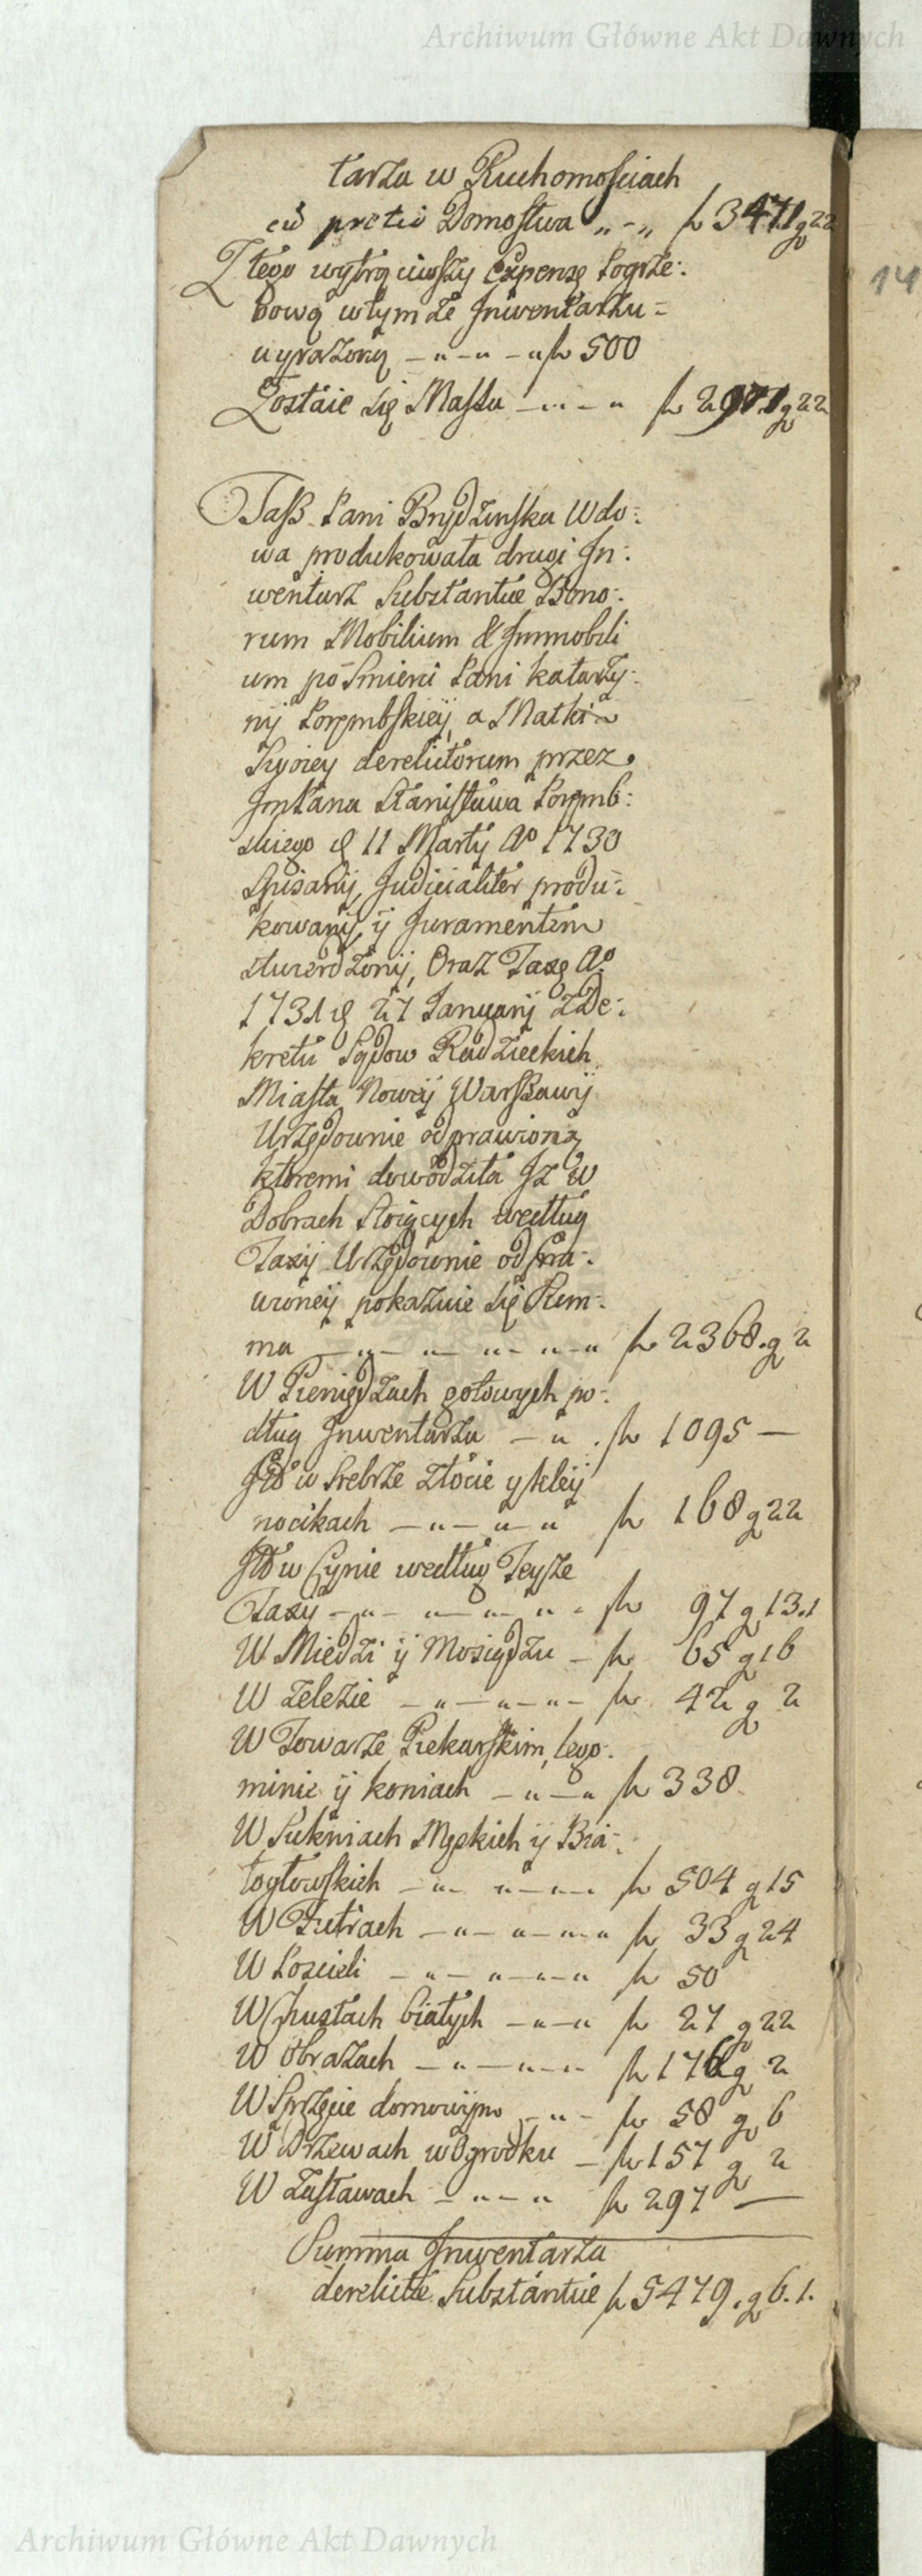 Archiwum Główne Akt Dawnych
tarza w Ruchomościach
cū pretio Domostwa „-„ fl 3471 g 22
Z tego wytrąciwszy Expensę Pogrze:
bową w tymże Jnwentarzu =
wyrażoną — „ — „ — „ fl 500
Zostaie się Massa — „ — „ fl 2971 g 22
14
Taß Pani Brydzinska Wdo:
wa produkowała drugi Jn:
wentarz Substantiæ Bono:
rum Mobilium & Jmmobili
um po Smierci Pani Katarzy:
nÿ Porembskieÿ, a Matki
Swoiey derelictorum przez
JmPana Stanisława Poremb:
skiego d 11 Martÿ Ao 1730
Spisanÿ, Judicialiter produ:
kowanÿ, ÿ Juramentem
stwierdzonÿ, Oraz Taxę Ao
1731 d 27 Januarÿ z De:
kretu Sądow Radzieckich
Miasta Noweÿ Warszawÿ
Urzędownie odprawioną
ktoremi dowodziła Jz w
Dobrach Stoiących według
Taxÿ Urzędownie odpra:
wioneÿ pokazuie się Sum:
ma — „ — „ — „ — „ fl 2368. g 2
W Pieniądzach gotowych po:
dług Jnwentarza — „ . fl 1095 —
Jtō w Srebrze złocie y kleÿ
nocikach — „ — „ — „ fl 168 g 22
Jtō w Cynie według Teysze
Taxy — „ — „ — „ — „ fl 97 g 13.1
W Miedzi ÿ Mosiądzu — fl 65 g 16
W Zelezie — „ — „ — „ — fl 42 g 2
W Towarze Piekarskim, lego:
minie ÿ koniach — „ — „ fl 338
W Sukniach Męskich ÿ Bia:
łogłowskich — „ — „ — fl 504 g 15
W Futrach — „ — „ — „ fl 33 g 24
W Poscieli — „ — „ — „ fl 50
W Chustach białych — „ — „ fl 27 g 22
W Obrazach — „ — „ — fl 176 g 2
W Sprzęcie domowÿm — „ — fl 58 g 6
W Drzewach w Ogrodku — fl 157 g 2
W Zastawach — „ — „ fl 297 —
Summa Jnwentarza
derelictæ Substantiæ fl 5479. g 6. 1.
Archiwum Główne Akt Dawnych